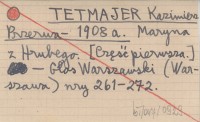 TETMAJER Kazimierz
Przerwa- 1908 a. Maryna
z Hrubego. [Część pierwsza.]
— Głos Warszawski (War-
szawa) nry 261-272.